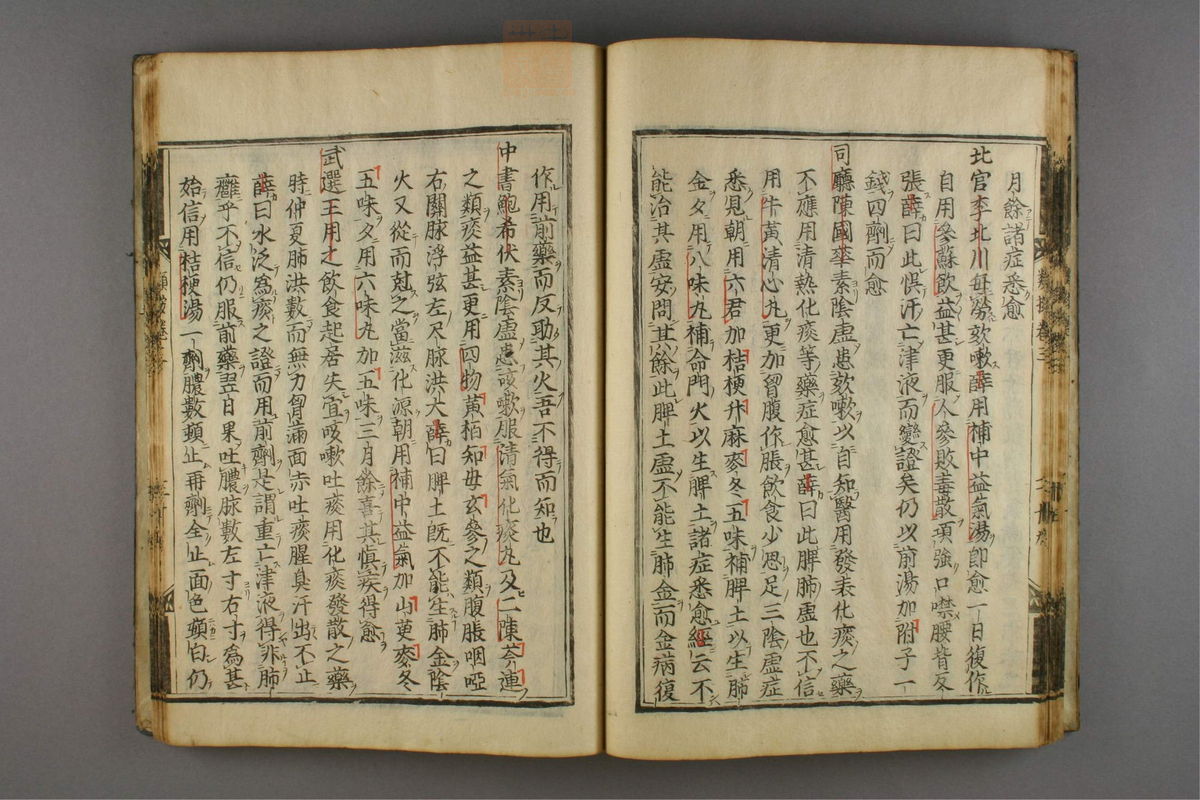 月餘諸症悉愈
北官李北川毋勞欬嗽薛用補中益氣湯即愈一日復作
自用參蘇飲益甚更服人參敗毒散項強口噤腰背反
張薛曰此悞汗亡津液而變證矣仍以前湯加附子一
錢四劑而愈
司廳陳國華素陰虛患欬嗽以自知醫用發表化痰之藥
不應用清熱化痰等藥症愈甚薛曰此脾肺虛也不信
用牛黃清心丸更加胷腹作脹飲食少思足三陰虛症
悉見朝用六君加桔梗升麻麥冬五味補脾土以生肺
金夕用八味丸補命門火以生脾土諸症悉愈經云不
能治其虛安問其餘此脾土虛不能生肺金而金病復
作用前藥而反助其火吾不得而知也
中書鮑希伏素陰虛患咳嗽服清氣化痰丸及二陳芩連
之類痰益甚更用四物黃栢知毋玄參之類腹脹咽啞
右關脉浮弦左尺脉洪大薛曰脾土既不能生肺金陰
火又從而尅之當滋化源朝用補中益氣加山茰麥冬
五味夕用六味丸加五味三月餘喜其愼疾得愈
武選王用之飲食起居失宜咳嗽吐痰用化痰發散之藥
時仲夏肺洪數而無力胷滿面赤吐痰腥臭汗出不止
薛曰水泛爲痰之證而用前劑是謂重亡津液得非肺
癰乎不信仍服前藥翌日果吐膿脉數左寸右寸爲甚
始信用桔梗湯一劑膿數頓止再劑全止面色頓白仍